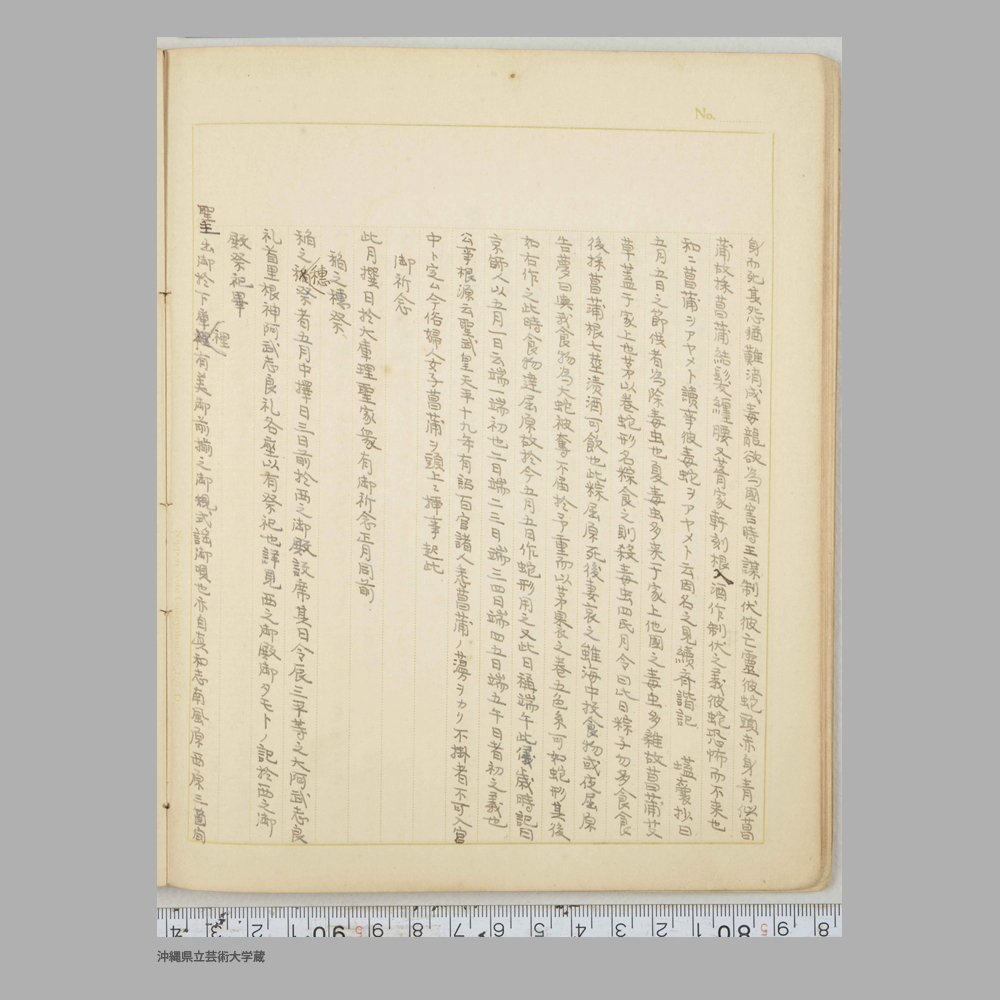 No.
身而死其怨猶難消成毒龍欲為國害時王謀制伏彼亡靈彼蛇頭赤身青以菖
蒲故採菖蒲結髮纏腰又菁家軒刻根入酒作制伏之義彼蛇恐怖而不来也
和ニ菖蒲ヲアヤメト讀事彼毒蛇ヲアヤメト云因名之見續斉諧記 蓋囊抄曰
五月五日之節供者為除毒虫也夏毒虫多来于家上他國之毒虫多雜故菖蒲艾
草蓋于家上也茅以卷蛇形名粽食之則殺毒虫四民月令曰此日粽子勿多食食
後採菖蒲根七莖漬酒可飲也此粽屈原死後妻哀之雖海中投食物或夜屈原
告夢曰與我食物為大蛇被奪不届於予重而以茅裹之卷五色糸可如蛇形其後
如右作之此時食物達屈原故於今五月五日作蛇形用之又此日稱端午此儀歲時記曰
京師人以五月一日云端一端初也二日端二三日端三四日端四五日端五午日者初之義也
公事根源云聖武皇天平十九年有詔百官諸人悉菖蒲ノ蘰ヲカリ不掛者不可入官
中ト定ム今俗婦人女子菖蒲ヲ頭上ニ揷事起此
御祈念
此月撰日於大庫理聖家衆有御祈念正月同前
稲之穗祭
稲之穗祭者五月中擇日三日前於西之御殿設席其日令辰三平等之大阿武志良
礼首里根神阿武志良礼各座以有祭祀也詳見西之御殿御タモトノ記於西之御
殿祭祀畢
聖主出御於下庫裡有美御前揃之御規式謡御唄也亦自真和志南風原西原三箇間
沖縄県立芸術大学蔵